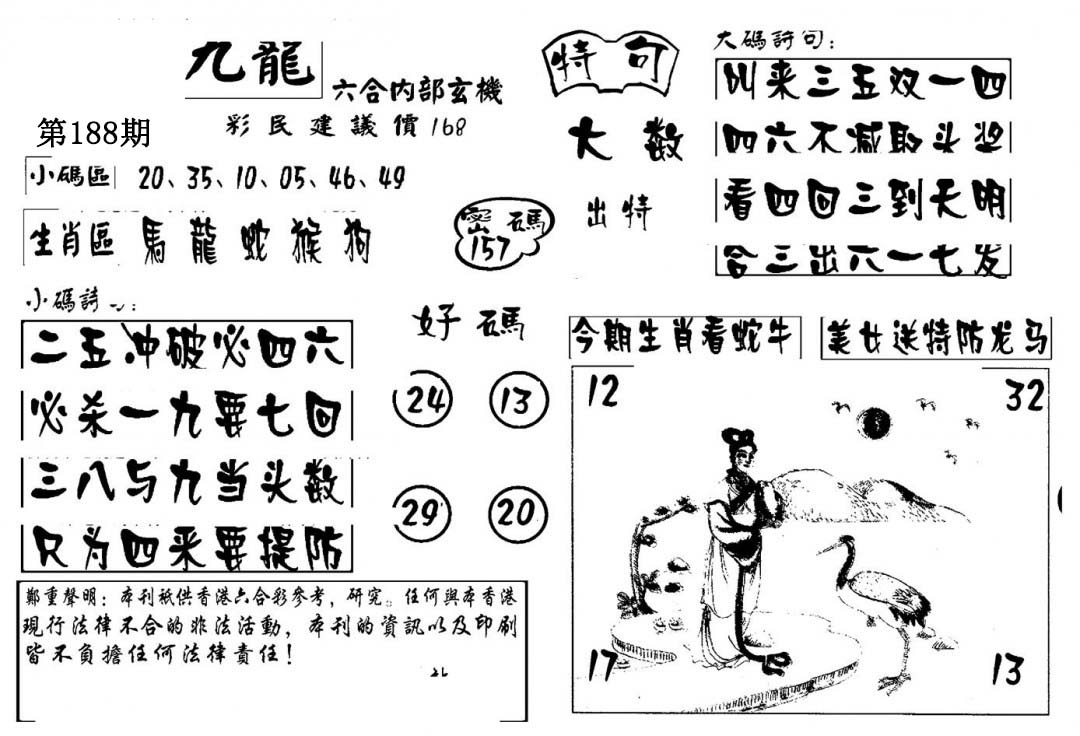 九龍
六合内部玄機
第188期
彩民建議價168
小碼區 20、35、10、05、46、49
生肖區 馬龍蛇猴狗
密碼
157
小碼詩
二五冲破必四六
必杀一九要七回
三八与九当头数
只为四来要提防
好碼
24 13
29 20
鄭重聲明：本刊衹供香港六合彩參考，研究。任何與本香港
現行法律不合的非法活動，本刊的資訊以及印刷
皆不負擔任何法律責任！
特句
大数
出特
大碼詩句：
叫来三五双一四
四六不减取头奖
看四回三到天明
合三出六一七发
今期生肖看蛇牛
美女送特防龙马
12 32
17 13